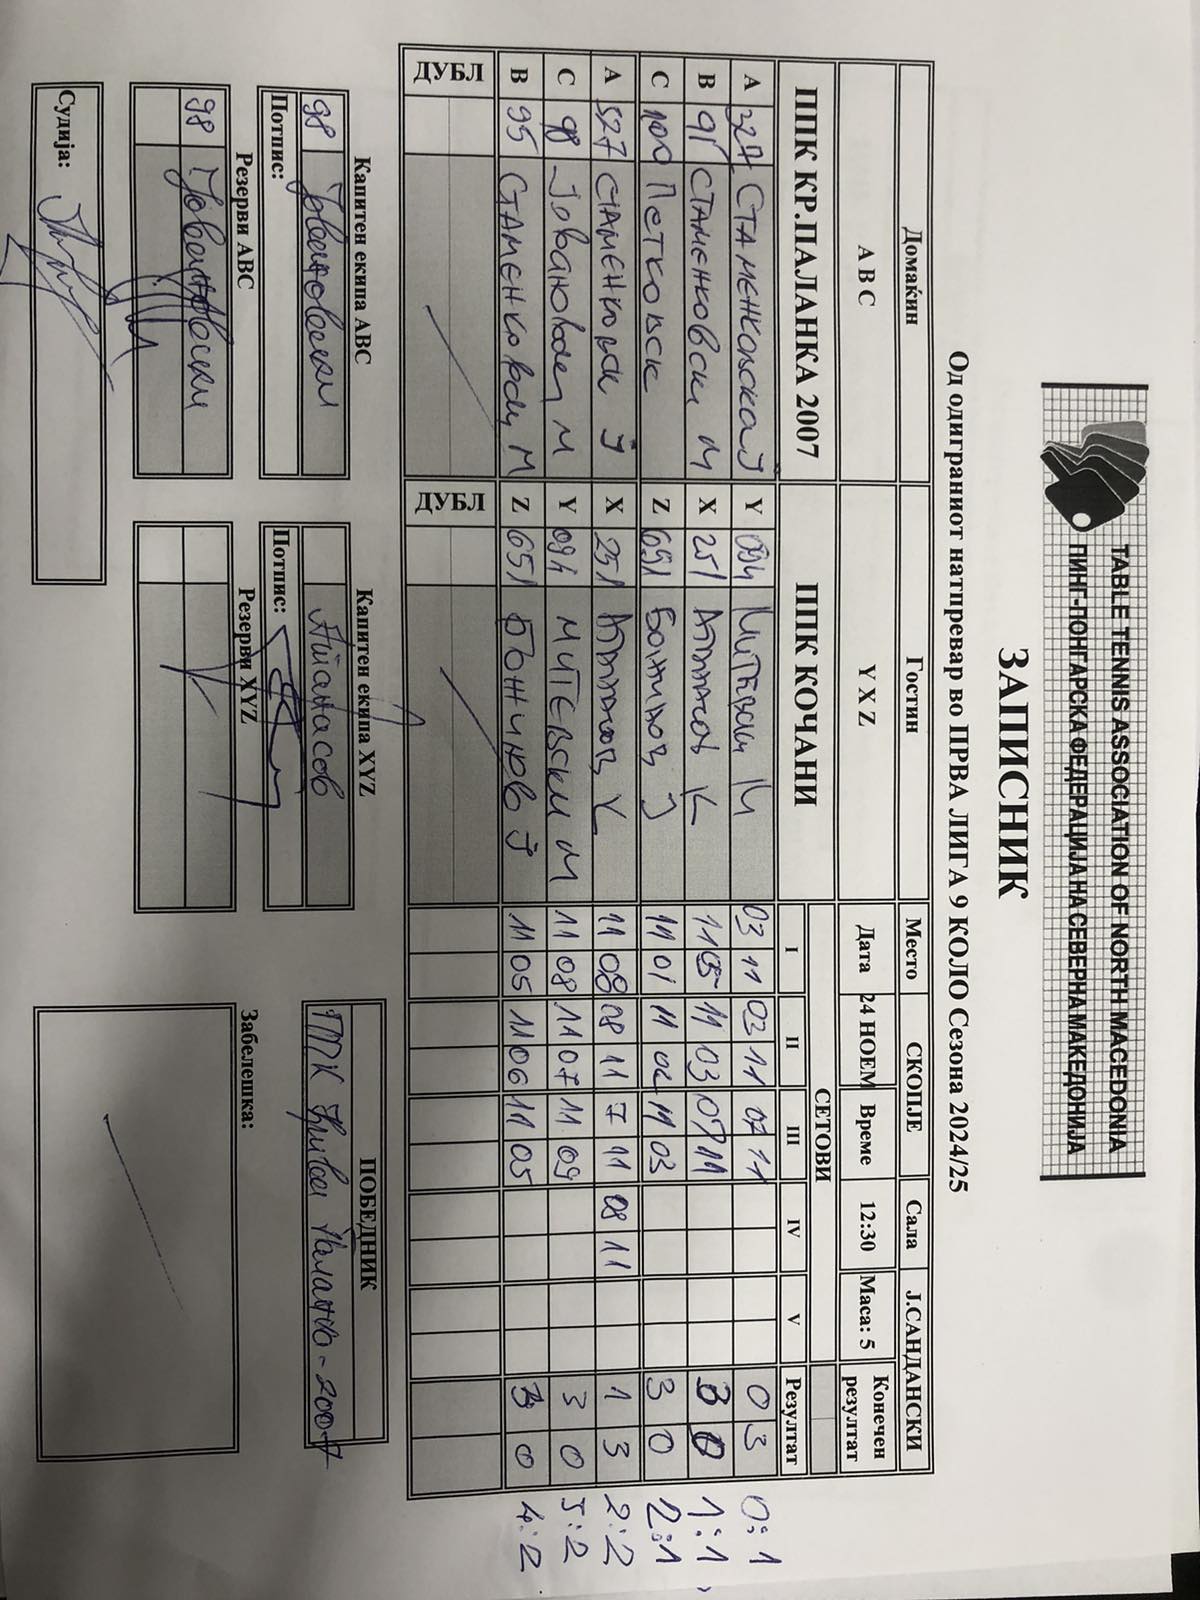 TABLE TENNIS ASSOCIATION OF NORTH MACEDONIA
ПИНГ-ПОНГАРСКА ФЕДЕРАЦИЈА НА СЕВЕРНА МАКЕДОНИЈА
ЗАПИСНИК
Од одиграниот натпревар во ПРВА ЛИГА 9 КОЛО Сезона 2024/25
Домаќин Гостин Место СКОПЈЕ Сала Ј.САНДАНСКИ
A B C Y X Z Дата 24 НОЕМ Време 12:30 Маса: 5 Конечен резултат
ППК КР.ПАЛАНКА 2007 ППК КОЧАНИ СЕТОВИ
I II III IV V Резултат
A 327 Y 03 11 03 11 07 11 0 3 0:1
B СТАМЕНКОВСКИ М X 251 11 03 3 0 1:1
C 100 ПЕТКОВСК Z 651 11 01 11 02 11 03 3 0 2:1
A 527 СТАМЕНКОВСКИ Ј X 251 11 08 08 11 7 11 08 11 1 3 2:2
C 98 Јовановски М Y 094 МИТЕВСКИ М 11 08 11 07 11 09 3 0 3:2
B 95 СТАМЕНКОВСКИ М Z 651 БОЖИНОВ Ј 11 05 11 06 11 05 3 0 4:2
ДУБЛ ДУБЛ
Капитен екипа ABC Капитен екипа XYZ ПОБЕДНИК
98 Јовановски Атанасов ППК Крива Паланка-2007
Потпис: Потпис:
Резерви ABC Резерви XYZ Забелешка:
98 Јовановски
Судија: